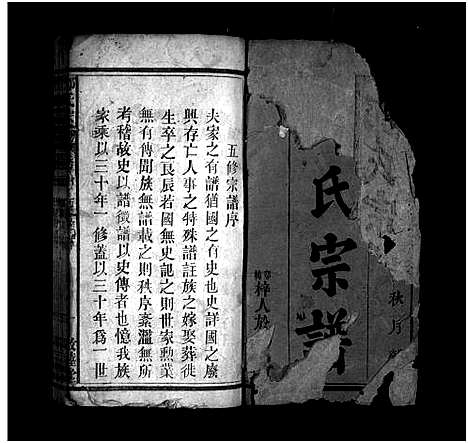 秋月
氏宗譜
梓人於
五修宗譜序
夫家之有譜猶國之有史也史詳國之廢
興存亡人事之特殊譜註族之嫁娶葬徙
生卒之良辰若國無史記之則世家勲業
無有傳聞族無譜載之則秩序紊濫無所
考稽故史以譜徵譜以史傳者也憶我族
家乘以三十年一修蓋以三十年爲一世